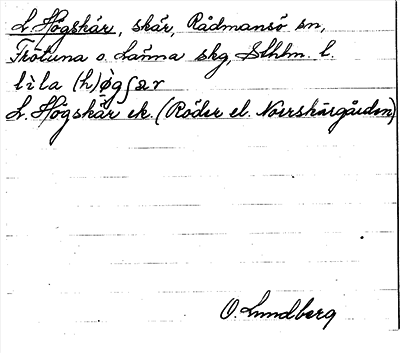 L. Högskär, skär, Rådmansö sn,
Frötuna o. Länna skg, Sthlm. l.
lìla (h)ø̀gʃær
L. Högskär ek. (Röder el. Norrskärgården)
O. Lundberg